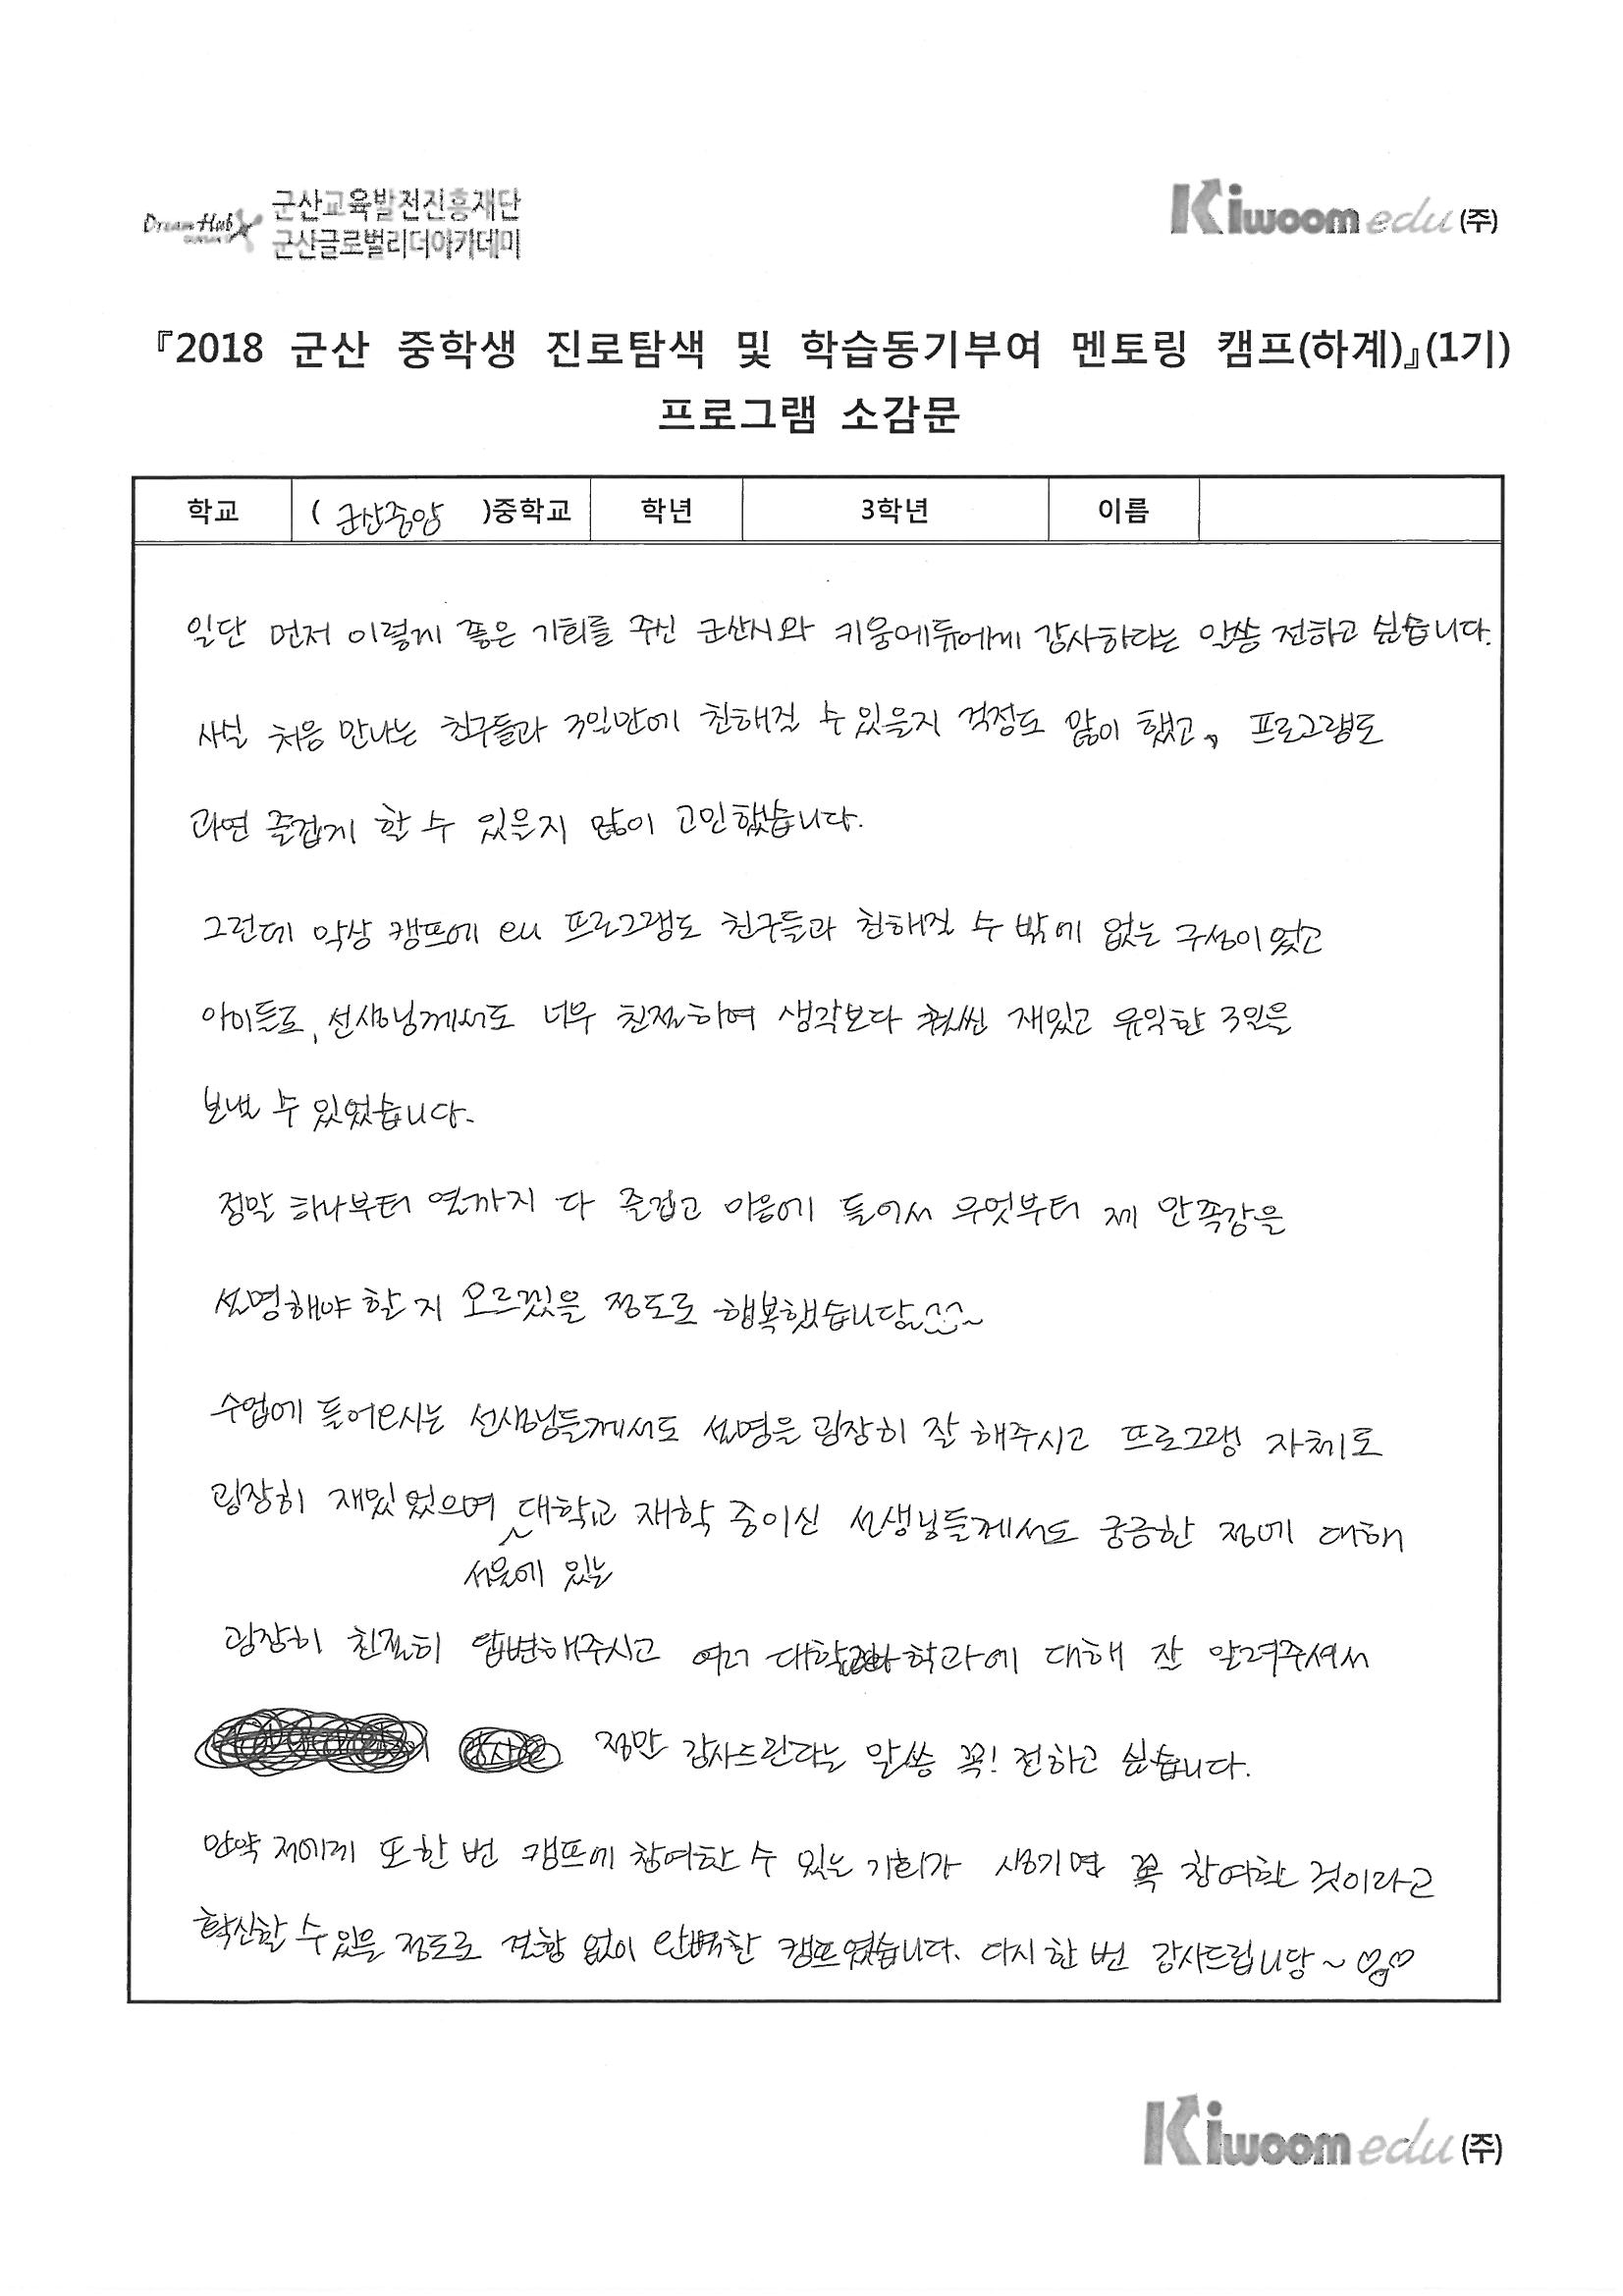 Dream Hub 군산교육발전진흥재단
군산글로벌리더아카데미
Kiwoom edu (주)
『2018 군산 중학생 진로탐색 및 학습동기부여 멘토링 캠프(하계)』(1기)
프로그램 소감문
학교 ( 군산중앙 )중학교 학년 3학년 이름
일단 먼저 이렇게 좋은 기회를 주신 군산시와 키움에듀에게 감사하다는 말씀 전하고 싶습니다.
사실 처음 만나는 친구들과 3일만에 친해질 수 있을지 걱정도 많이 했고, 프로그램도
과연 즐겁게 할 수 있을지 많이 고민했습니다.
그런데 막상 캠프에 오니 프로그램도 친구들과 친해질 수 밖에 없는 구성이었고
아이들도, 선생님께서도 너무 친절하여 생각보다 훨씬 재밌고 유익한 3일을
보낼 수 있었습니다.
정말 하나부터 열까지 다 즐겁고 마음에 들어서 무엇부터 제 만족감을
설명해야 할 지 모르겠을 정도로 행복했습니당~^^~
수업에 들어오시는 선생님들께서도 설명을 굉장히 잘 해주시고 프로그램 자체도
굉장히 재밌었으며 대학교 재학 중이신 선생님들께서도 궁금한 점에 대해
서울에 있는
굉장히 친절히 답변해주시고 여러 대학 학과에 대해 잘 알려주셔서
정말 감사드린다는 말씀 꼭! 전하고 싶습니다.
만약 저에게 또 한 번 캠프에 참여할 수 있는 기회가 생기면 꼭 참여할 것이라고
확신할 수 있을 정도로 결함 없이 완벽한 캠프였습니다. 다시 한 번 감사드립니당~♡♡
Kiwoom edu (주)